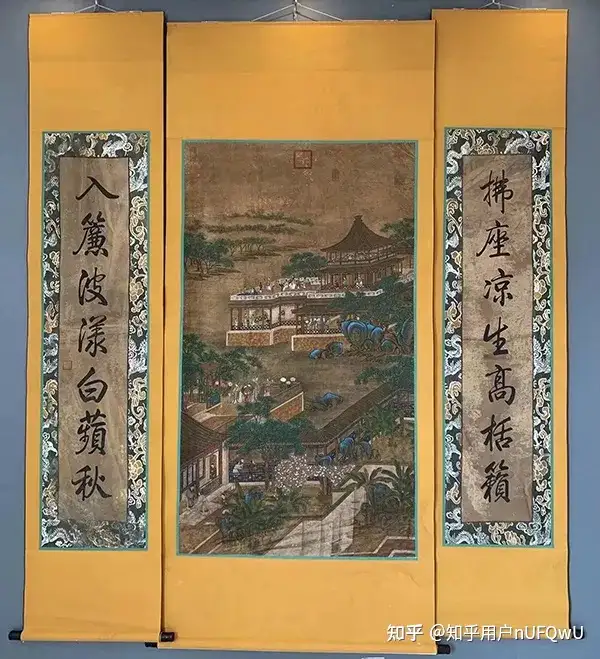 拂座凉生高栝籟
入簾波漾白蘋秋
知乎 @知乎用户nUFQwU